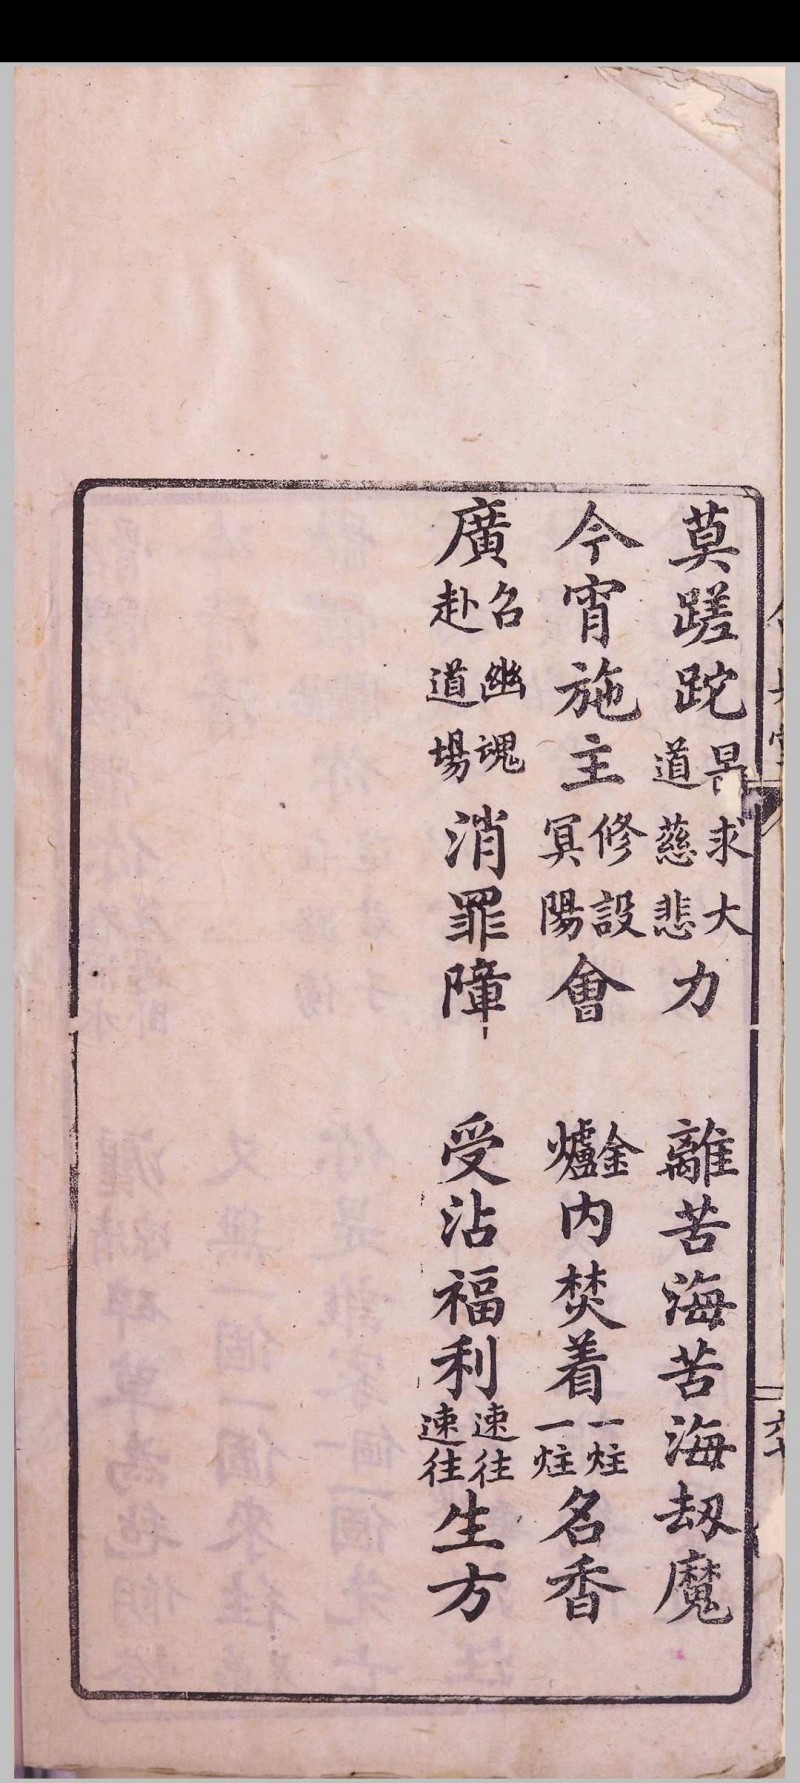 莫蹉跎早求大道慈悲力　離苦海苦海刼魔
今宵施主修設冥陽會　金爐内焚着一炷一炷名香
廣召幽魂赴道場消罪障　受沾福利速往速往生方